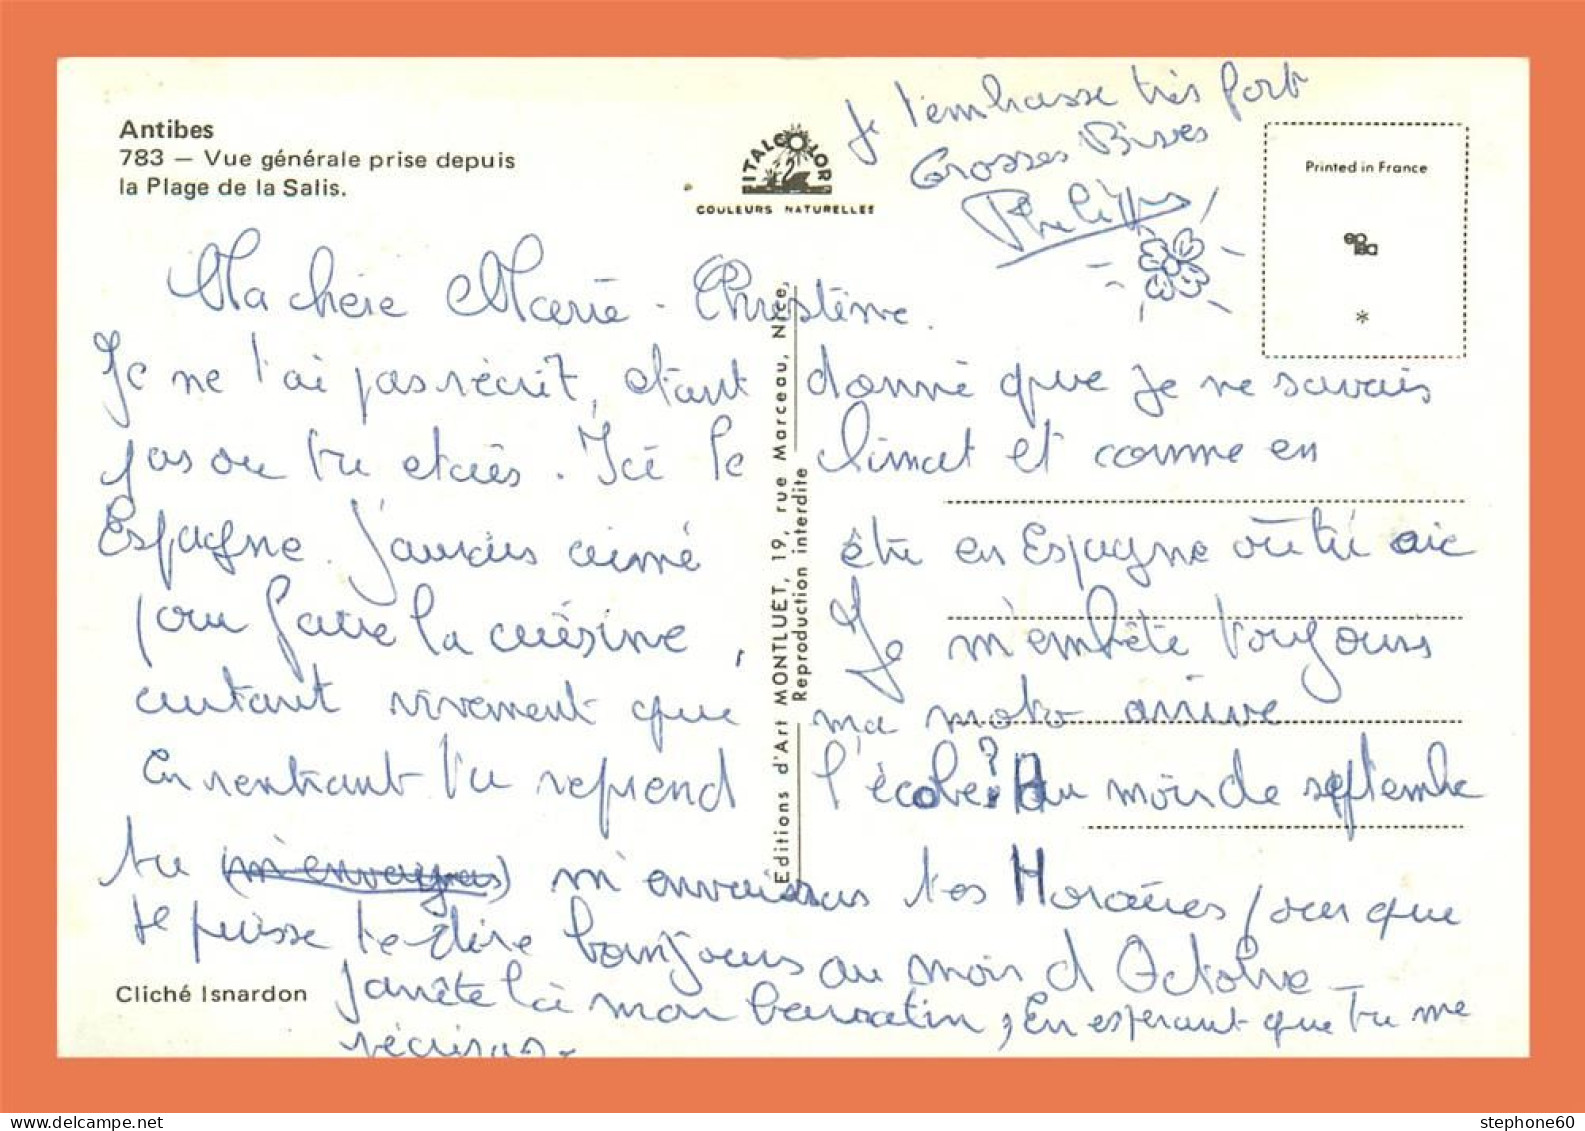 Antibes
783 — Vue générale prise depuis
la Plage de la Salis.
ITALCOLOR
COULEURS NATURELLES
Je t'embrasse très fort
Grosses Bises
Philippe
Printed in France
*
Ma chère Marie-Christine.
Je ne t'ai pas récrit, étant donné que je ne savais
pas ou tu étais. Ici le climat et comme en
Espagne. J'aurais aimé être en Espagne où tu
pour faire la cuisine, Je m'embête toujours
autant vivement que ma moto arrive
En rentrant tu reprend l'école? Au mois de septembre
tu (m'envoyras) m'envairas tes Horaires pour que
je puisse te dire bonjours au mois d Octobre
J'arrête là mon barratin, En espérant que tu me
récriras.
Editions d'Art MONTLUET, 19, rue Marceau, Nice,
Reproduction interdite
Cliché Isnardon
stephone60